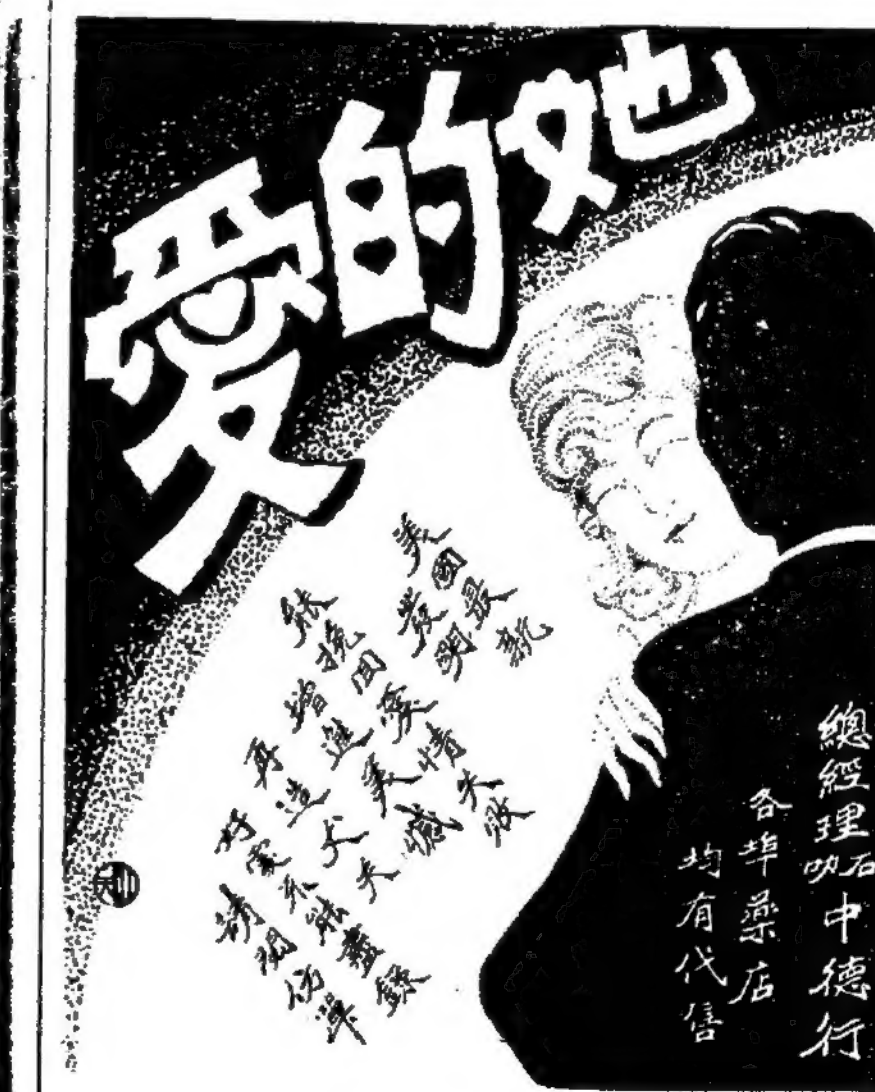 她的愛
美國最新
發明
能挽回愛情失敗
增進美感
再造丈夫
好處不能盡錄
請閱仿單
總經理石叻中德行
各埠藥店
均有代售